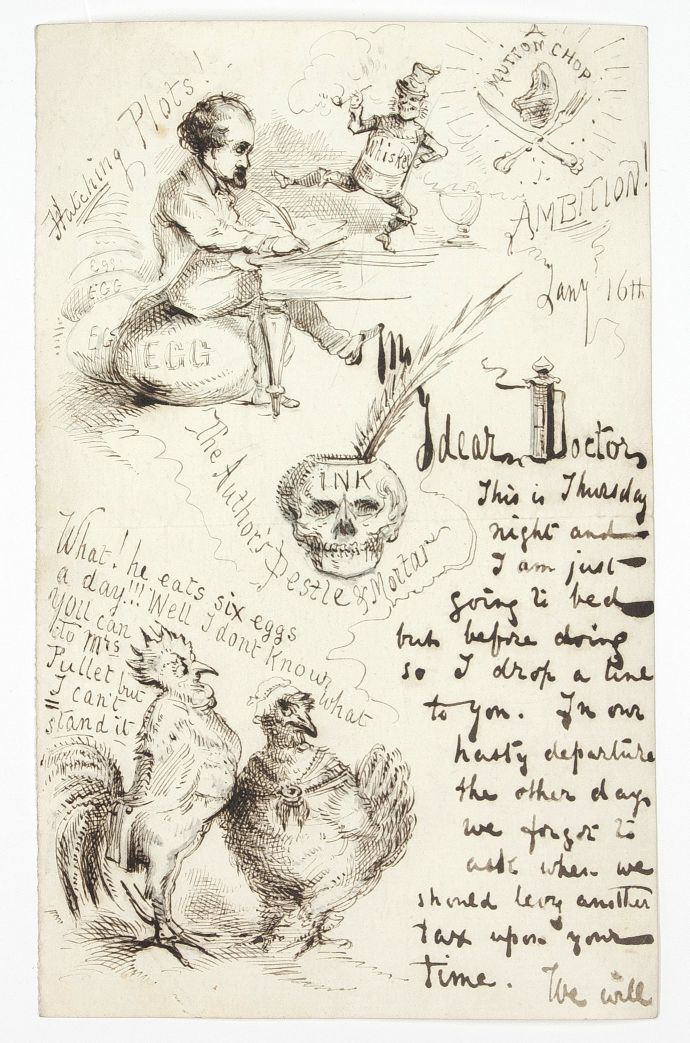 Hatching Plots!
A
MUTTON CHOP
AMBITION!
Mister
Egg
EGG
EG
EGG
Jany 16th
My
dear Doctor,
INK
The Author's Pestle & Mortar
This is Thursday
night and
I am just
going to bed
but before doing
so I drop a line
to you. In our
hasty departure
the other day
we forgot to
ask when we
should levy another
tax upon your
time. We will
What! he eats six eggs
a day!!! Well I dont know what
you can
to Mrs
Pullet but
I can't
stand it